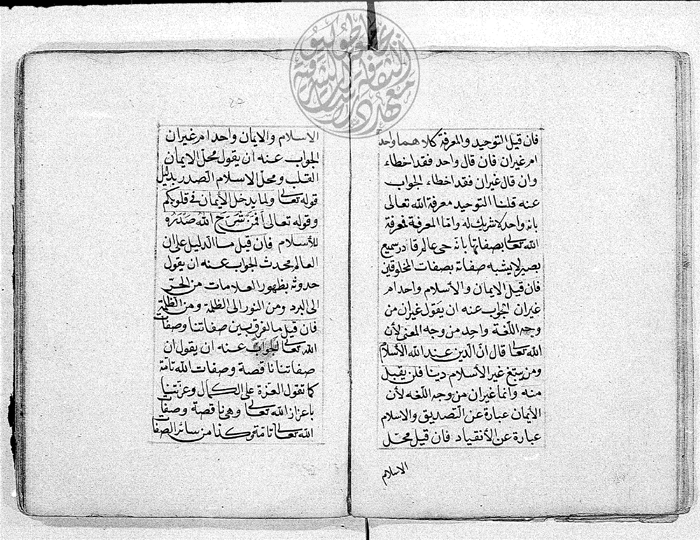 فان قيل التوحيد والمعرفة كلاهما واحد
ام غيران فان قال واحد فقد اخطاء
وان قال غيران فقد اخطاء الجواب
عنه قلنا التوحيد معرفة الله تعالى
بانه واحد لاشريك له واما المعرفة فمعرفة
الله تعالى بصفاتها بانه حي عالم قادر سميع
بصير لايشبه صفاته بصفات المخلوقين
فان قيل الايمان والاسلام واحد ام
غيران الجواب عنه ان يقول غيران من
وجه اللغة واحد من وجه المعنى لأن
الله تعالى قال ان الدين عند الله الأسلام
ومن يبتغ غير الأسلام دينا فلن يقبل
منه وانما غيران من وجه اللغه لأن
الأيمان عبارة عن التصديق والاسلام
عبارة عن الأنقياد فان قيل محل
الاسلام
الاسلام والايمان واحد ام غيران
الجواب عنه ان يقول محل الايمان
القلب ومحل الاسلام الصدر بدليل
قوله تعالى ولما يدخل الأيمان في قلوبكم
وقوله تعالى أفمن شرح الله صدره
للأسلام فان قيل ما الدليل على ان
العالم محدث الجواب عنه ان يقول
حدوثه بظهور العلامات من الحر
الى البرد ومن النور الى الظلمة ومن الظلمة
فان قيل ما الفرق بين صفاتنا وصفات
الله تعالى الجواب عنه ان يقول ان
صفاتنا ناقصة وصفات الله تامة
كما تقول العزة على الكمال وعزتنا
باعزاز الله تعالى وهي ناقصة وصفات
الله تعالى تامة وكذا من سائر الصفات